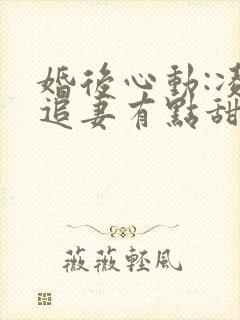 婚後心動:凌
追妻有點甜
薇薇輕風